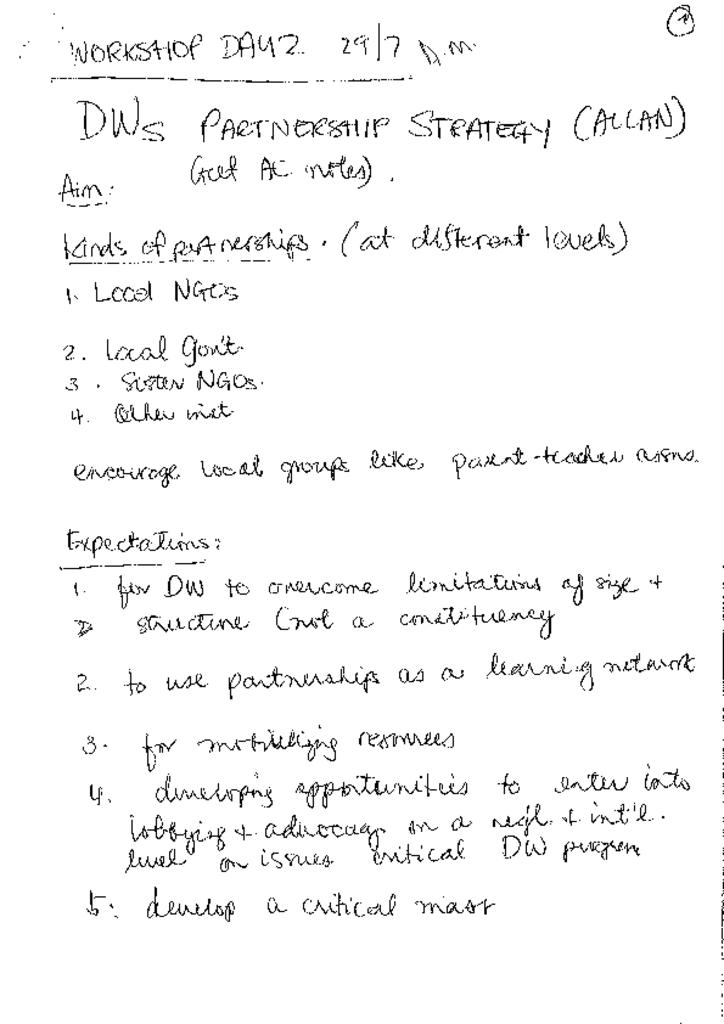 WORKSHOP DAY 2 29/7 A.M.
DWs PARTNERSHIP STRATEGY (ALLAN)
(get AC notes).
Aim:
Kinds of partnerships. (at different levels)
1. Local NGOs
2. Local Gov't.
3. Sister NGOs.
4. Other inst
encourage local groups like parent-teacher assns.
Expectations:
1. for DW to overcome limitations of size +
structure (not a constituency
2. to use partnerships as a learning network
3. for mobilizing resources
4. developing opportunities to enter into
lobbying + advocacy on a reg'l. + int'l.
level on issues critical DW program
5. develop a critical mass